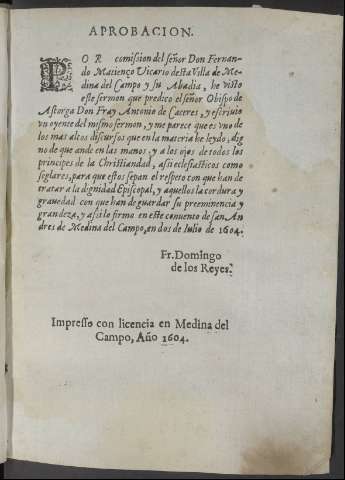 APROBACION.
POR comission del señor Don Fernan-
do Masienço Vicario desta Villa de Me-
dina del Campo y su Abadia, he visto
este sermon que predico el señor Obispo de
Astorga Don Fray Antonio de Caceres, y escriuio
vn oyente del mismo sermon, y me parece que es vno de
los mas altos discursos que en la materia he leydo, dig
no de que ande en las manos, y a los ojos de todos los
principes de la Christiandad, assi eclesiasticos como
seglares, para que estos sepan el respeto con que han de
tratar a la dignidad Episcopal, y aquellos la cordura y
grauedad con que han de guardar su preeminencia y
grandeza, y assi lo firmo en este conuento de san An
dres de Medina del Campo, an dos de Iulio de 1604.
Fr. Domingo
de los Reyes.
Impresso con licencia en Medina del
Campo, Año 1604.